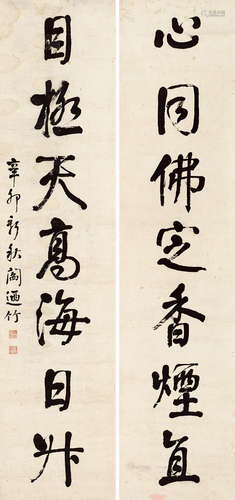 心同佛定香煙直
目極天高海日升
辛卯新秋閻迺竹